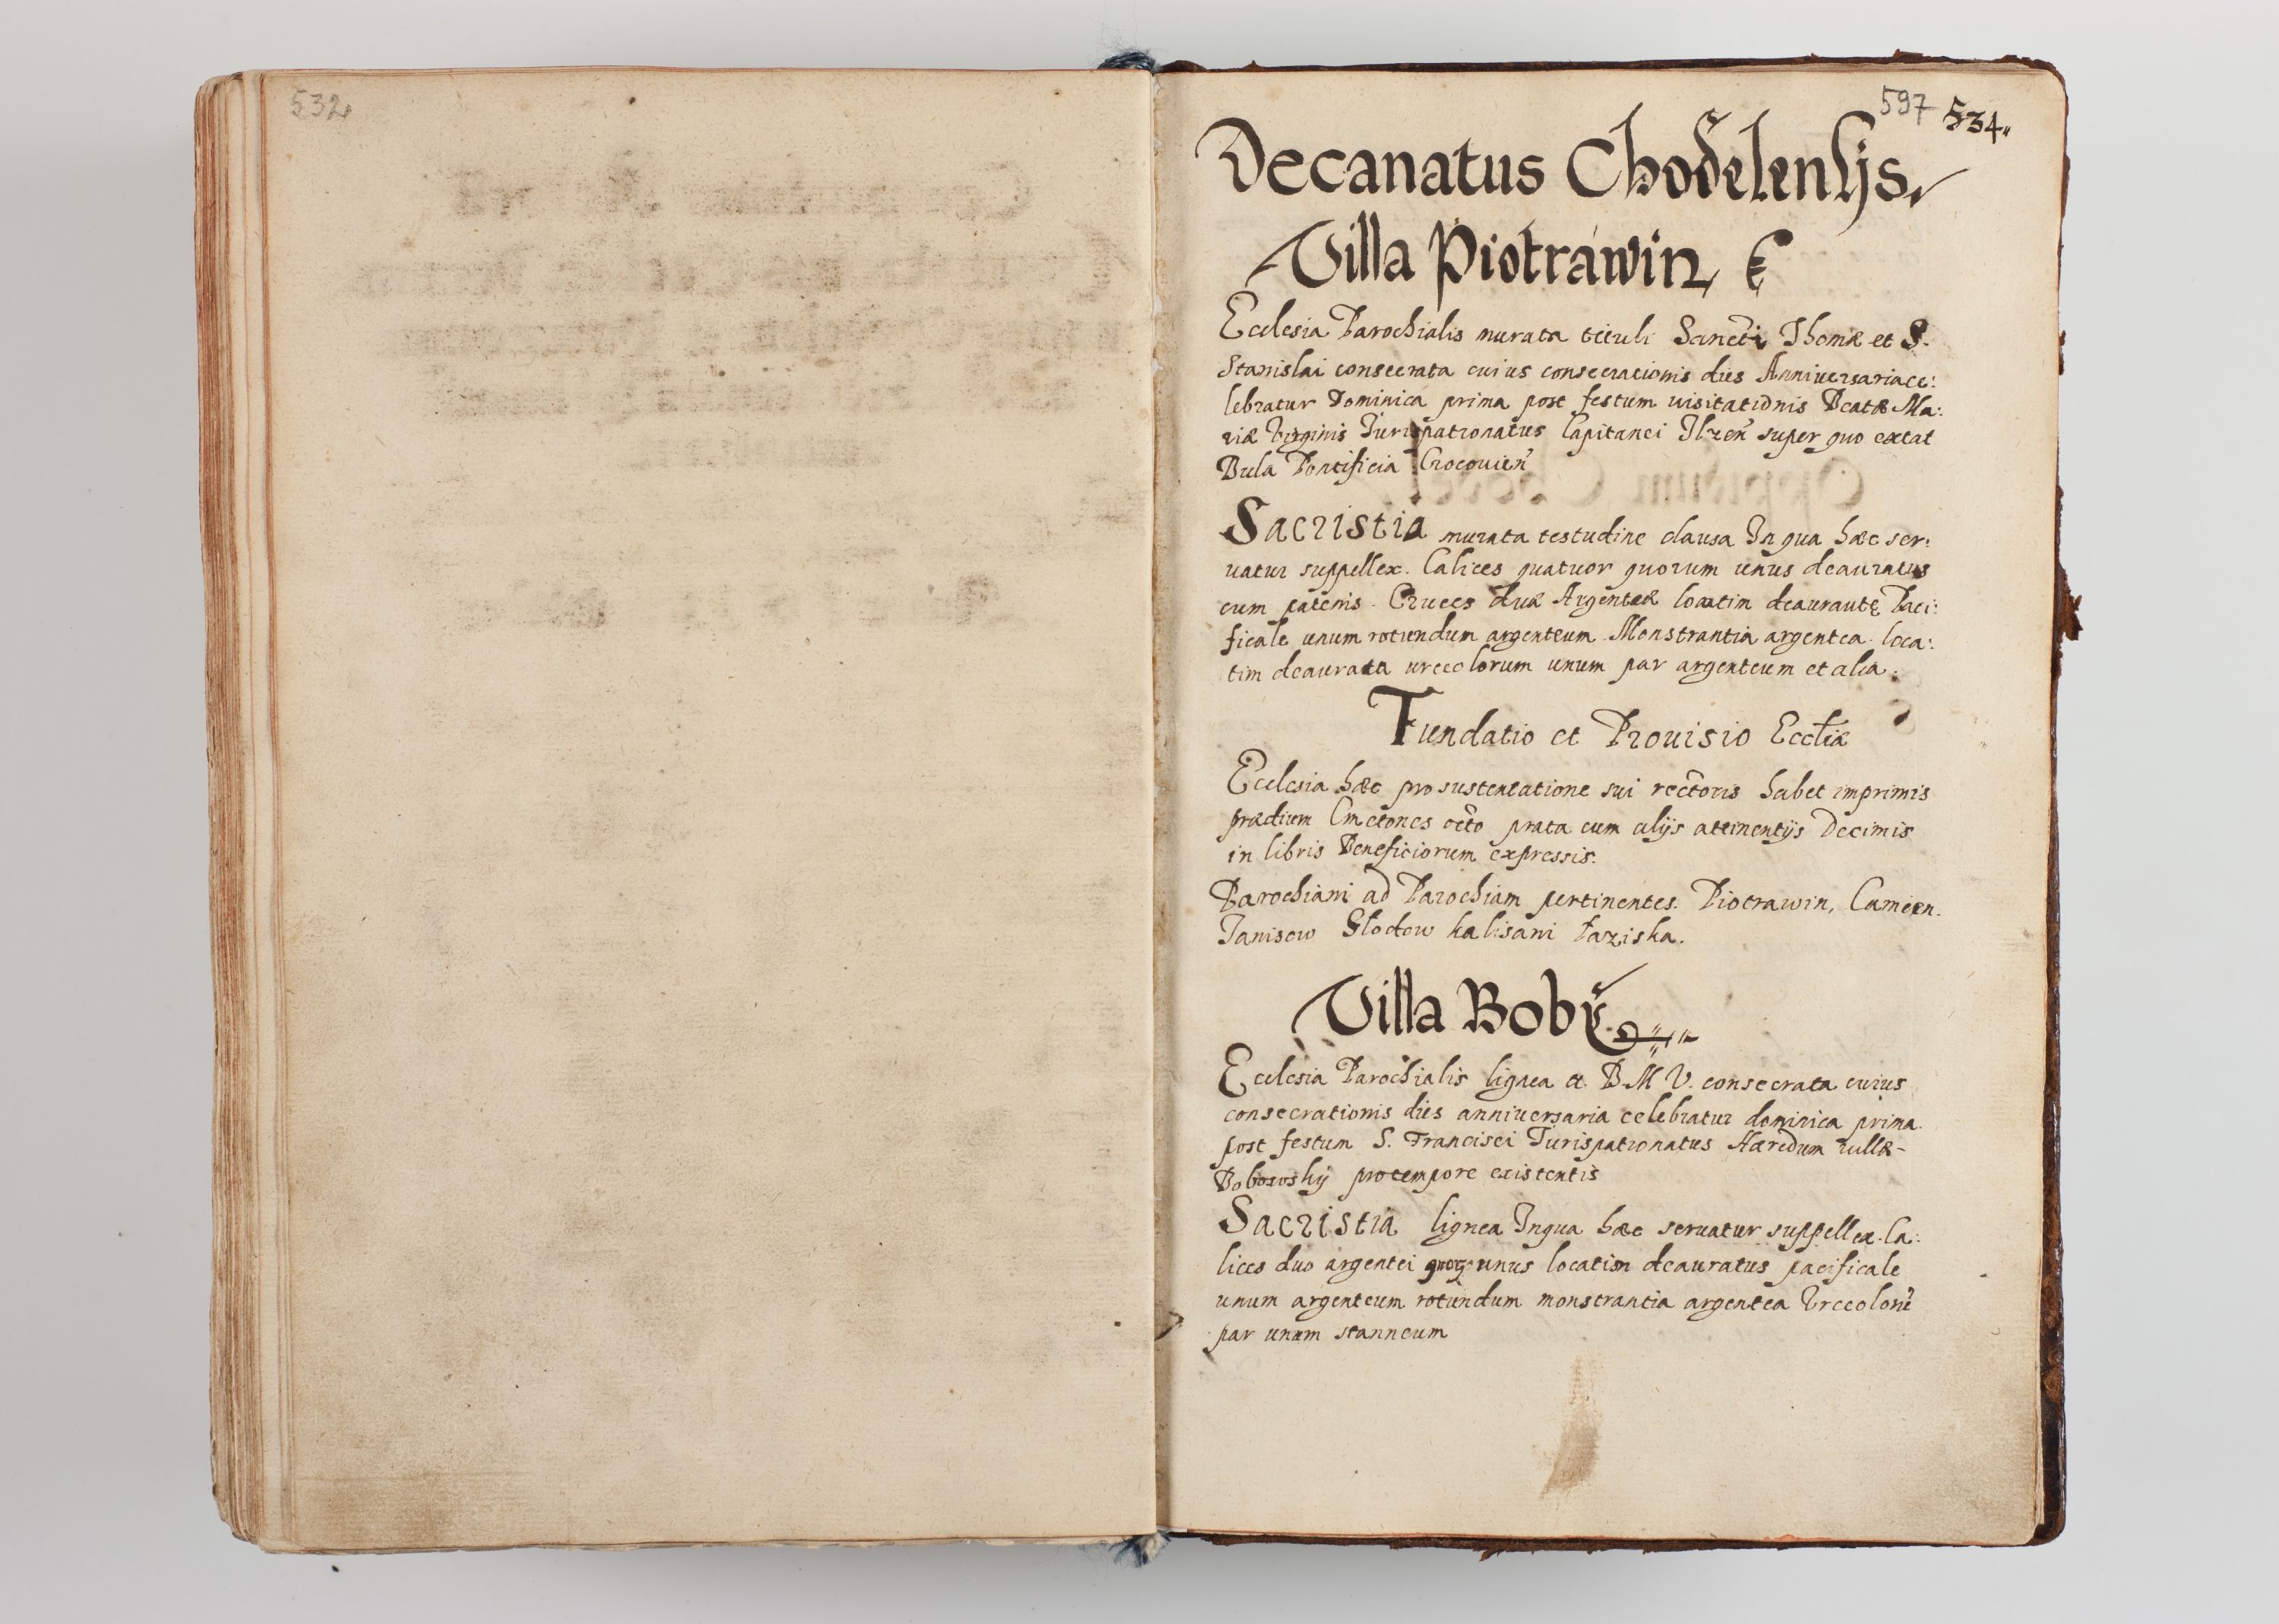 532
597 534
Decanatus Chodelensys
Villa Piotrawin
Ecclesia Parochialis murata tituli Sancti Thomæ et S.
Stanislai consecrata cuius consecrationis dies Anniversaria ce:
lebratur Dominica prima post festum uisitationis Beatæ Ma:
riæ Virginis Jurispatronatus Capitanei Ilzen super quo extat
Bula Pontificia Crocouien
Sacristia murata testudine clausa In qua hæc ser:
uatur suppellex. Calices quatuor quorum unus deauratus
cum patenis. Cruces duæ Argenteæ locatim deauratæ Paci:
ficale unum rotundum argenteum Monstrantia argentea loca:
tim deaurata urceolorum unum par argenteum et alia.
Fundatio et Prouisio Eccliæ
Ecclesia hæc pro sustentatione sui rectoris habet imprimis
prædium Cmetones octo prata cum alijs attinentijs Decimis
in libris Beneficiorum expressis.
Parochiani ad Parochiam pertinentes. Piotrawin, Camien.
Janisow Głodow kalisani łaziska.
Villa Bobÿ
Ecclesia Parochialis lignea B. M V. consecrata cuius
consecrationis dies anniuersaria celebratur dominica prima
post festum S. Francisci Jurispatronatus Hæredum uillæ
Bobowskij protempore existentis
Sacristia lignea Inqua hæc seruatur suppellex. Ca:
lices duo argentei quorum unus locatim deauratus pacificale
unum argenteum rotundum monstrantia argentea Vrceolorũ
par unum stanneum